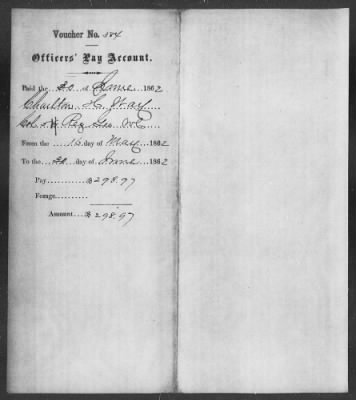 Voucher No. 384
Officers' Pay Account.
Paid the 20 of June 1862
Charlton H. Way
Col Reg Geo
From the 16 day of May 1862
To the 20 day of June 1862
Pay $298.97
Forage
Amount $298.97